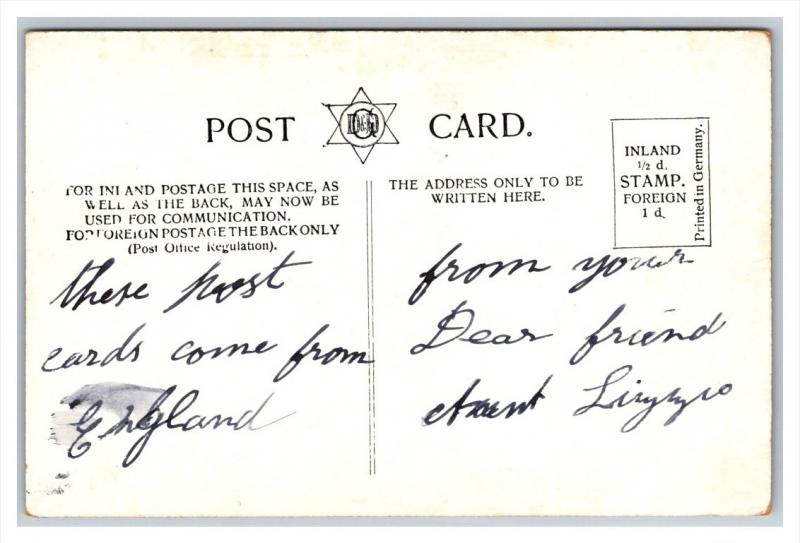 POST CARD.
INLAND
1/2 d.
STAMP.
FOREIGN
1 d.
Printed in Germany.
FOR INLAND POSTAGE THIS SPACE, AS
WELL AS THE BACK, MAY NOW BE
USED FOR COMMUNICATION.
FOR FOREIGN POSTAGE THE BACK ONLY
(Post Office Regulation).
THE ADDRESS ONLY TO BE
WRITTEN HERE.
these post
cards come from
England
from your
Dear friend
Aunt